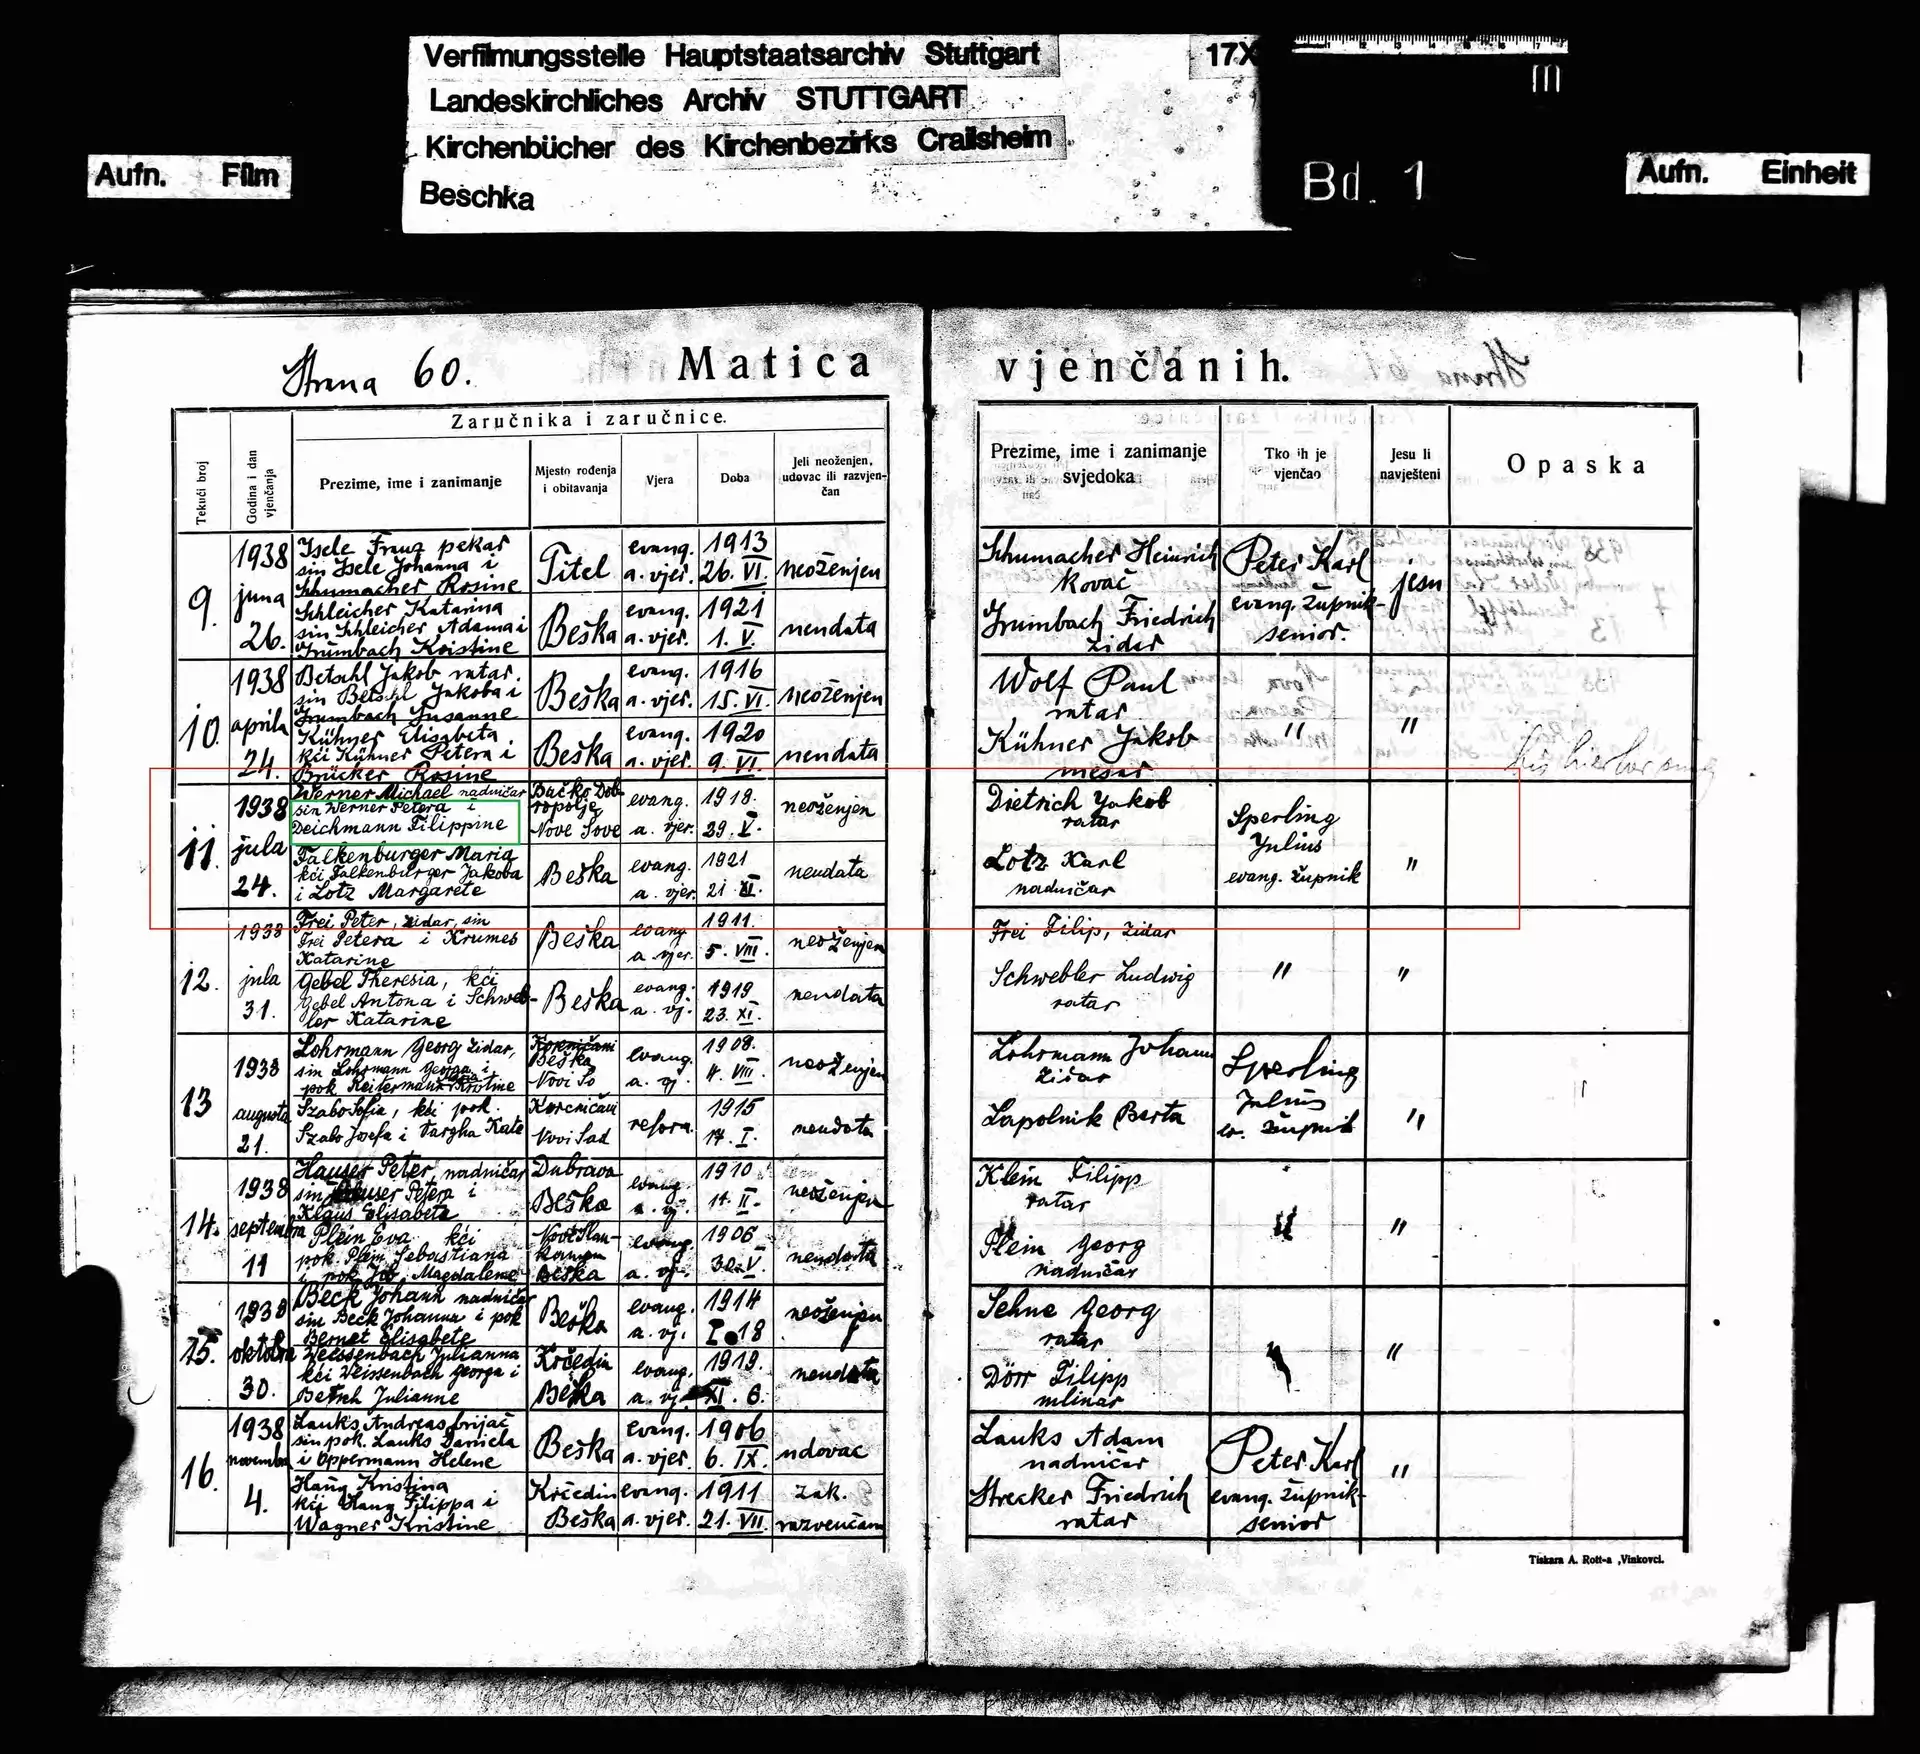 Verfilmungsstelle Hauptstaatsarchiv Stuttgart
17X
Landeskirchliches Archiv STUTTGART
Kirchenbücher des Kirchenbezirks Crailsheim
Beschka
Bd. 1
Aufn. Film
Aufn. Einheit
Strana 60.
Matica vjenčanih.
Zaručnika i zaručnice.
Tekući broj
Godina i dan vjenčanja
Prezime, ime i zanimanje
Mjesto rođenja i obitavanja
Vjera
Doba
Jeli neoženjen, udovac ili razvjenčan
Prezime, ime i zanimanje svjedoka
Tko ih je vjenčao
Jesu li navješteni
Opaska
9.
1938 juna 26.
Isele Franz pekar
sin Isele Johanna i
Schumacher Rosine
Titel
evang. a. vjer.
1913 26. VI.
neoženjen
Schleicher Katarina
sin Schleicher Adama i
Grumbach Kristine
Beška
evang. a. vjer.
1921 1. V.
neudata
Schumacher Heinrich
kovač
Grumbach Friedrich
zidar
Peter Karl
evang. župnik-
senior.
jesu
10.
1938 aprila 24.
Betschl Jakob ratar.
sin Betschl Jakoba i
Grumbach Susanne
Beška
evang. a. vjer.
1916 15. VI.
neoženjen
Kühner Elisabeta
kći Kühner Petera i
Brücker Rosine
Beška
evang. a. vjer.
1920 9. VI.
neudata
Wolf Paul
ratar
Kühner Jakob
mesar
"
"
11.
1938 jula 24.
Werner Michael nadničar
sin Werner Petera i
Deichmann Filippine
Bačko Dob-
ropolje
Nove Šove
evang. a. vjer.
1918. 29. V.
neoženjen
Falkenburger Maria
kći Falkenburger Jakoba
i Lotz Margarete
Beška
evang. a. vjer.
1921 21 XI.
neudata
Dietrich Jakob
ratar
Lotz Karl
nadničar
Sperling
Julius
evang. župnik
"
12.
1938 jula 31.
Frei Peter, zidar, sin
Frei Petera i Krumes
Katarine
Beška
evang a. vjer.
1911. 5. VIII.
neoženjen
Gebel Theresia, kći
Gebel Antona i Schweb-
ler Katarine
Beška
evang. a. vj.
1919 23. XI.
neudata
Frei Filip, zidar
Schwebler Ludwig
ratar
"
"
13
1938 augusta 21.
Lohrmann Georg zidar,
sin Lohrmann Georga i
pok. Reitermann Kristine
Beška
evang. a. vj.
1908. 4. VIII.
neoženjen
Szabo Sofia, kći pok.
Szabo Josefa i Vargha Kate
Novi Sad
refora.
1915 17. I.
neudata
Lohrmann Johann
zidar
Lapolnik Berta
Sperling
Julius
ev. župnik
"
14.
1938 septembra 11
Hauser Peter nadničar
sin Hauser Petera i
Klaus Elisabete
Dubrava
Beška
evang. a. vj.
1910 11. II.
neoženjen
Plein Eva kći
pok. Plein Sebastiana
i pok. Job Magdalene
Beška
evang. a. vj.
1906 30. V.
neudata
Klein Filipp
ratar
Plein Georg
nadničar
"
"
15.
1938 oktobra 30.
Beck Johann nadničar
sin Beck Johanna i pok
Bernet Elisabete
Beška
evang. a. vj.
1914 I. 18
neoženjen
Weissenbach Julianna
kći Weissenbach Georga i
Betsch Julianne
Krčedin
Beška
evang. a. vj.
1919. XI. 6.
neudata
Sehne Georg
ratar
Dörr Filipp
mlinar
"
16.
1938 novembra 4.
Lauks Andreas brijač
sin pok. Lauks Daniela
i Oppermann Helene
Beška
evang. a. vjer.
1906 6. IX.
udovac
Haug Kristina
kći Haug Filippa i
Wagner Kristine
Krčedin
Beška
evang. a. vjer.
1911 21. VII.
zak.
razvenčana
Lauks Adam
nadničar
Strecker Friedrich
ratar
Peter Karl
evang. župnik-
senior
"
Tiskara A. Rott-a, Vinkovci.